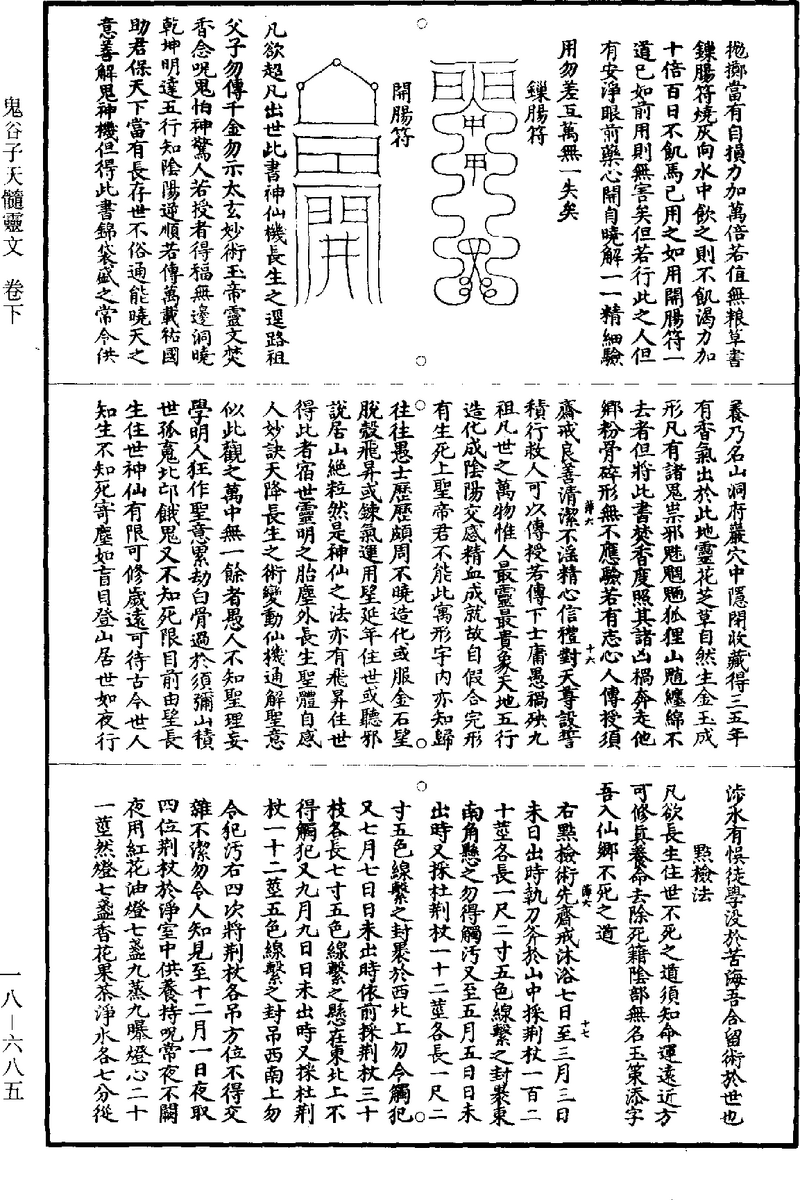 拖擲當有自損力加萬倍若值無粮草書
鏁腸符燒灰向水中飲之則不飢渴力加
十倍百日不飢馬已用之如用開腸符一
道已如前用則無害矣但若行此之人但
有安淨眼前藥心開自曉解一一精細驗
用勿差互萬無一失矣
鏁腸符
開腸符
凡欲超凡出世此書神仙機長生之逕路祖
父子勿傳千金勿示太玄妙術玉帝靈文焚
香念呪鬼怕神驚人若授者得福無邊洞曉
乾坤明達五行知陰陽逆順若傳萬載祐國
助君保天下當有長存世不俗通能曉天之
意善解鬼神機但得此書錦袋盛之常令供
養乃名山洞府巖穴中隱閉收藏得三五年
有香氣出於此地靈花芝草自然生金玉成
形凡有諸鬼祟邪魅魍魎狐狸山魈纏綿不
去者但將此書焚香度照其諸凶禍奔走他
鄉粉骨碎形無不應驗若有志心人傳授須
薄六
十六
齋戒良善清潔不淫精心信禮對天尊設誓
積行救人可以傳授若傳下士庸愚禍殃九
祖凡世之萬物惟人最靈最貴象天地五行
造化成陰陽交感精血成就故自假合完形
有生死上聖帝君不能此寓形宇內亦知歸
往往愚士歷歷頗周不曉造化或服金石望
脫殼飛昇或鍊氣運用望延年住世或聽邪
說居山絕粒然是神仙之法亦有飛昇住世
得此者宿世靈明之胎塵外長生聖體自感
人妙訣天降長生之術變動仙機通解聖意
似此觀之萬中無一餘者愚人不知聖理妄
學明人狂作聖意累劫白骨過於須彌山積
世孤魂北邙餓鬼又不知死限目前由望長
生住世神仙有限可修歲遠可待古今世人
知生不知死寄塵如盲目登山居世如夜行
涉水有悞徒學没於苦海吾合留術於世也
點檢法
凡欲長生住世不死之道須知命運遠近方
可修真養命去除死籍陰部無名玉策添字
吾入仙鄉不死之道
薄六
十七
右點檢術先齋戒沐浴七日至三月三日
未日出時執刀斧於山中採荆杖一百二
十莖各長一尺二寸五色線繫之封裹東
南角懸之勿得觸污又至五月五日日未
出時又採杜荆杖一十二莖各長一尺二
寸五色線繫之封裹於西北上勿令觸犯
又七月七日日未出時依前採荆杖三十
枝各長七寸五色線繫之懸在東北上不
得觸犯又九月九日日未出時又採杜荆
杖一十二莖五色線繫之封吊西南上勿
令犯污右四次將荆杖各吊方位不得交
雜不潔勿令人知見至十二月一日夜取
四位荆杖於淨室中供養持呪常夜不闕
夜用紅花油燈七盞九蒸九曝燈心二十
一莖然燈七盞香花果茶淨水各七分從
鬼谷子天髓靈文　卷下
一八—六八五